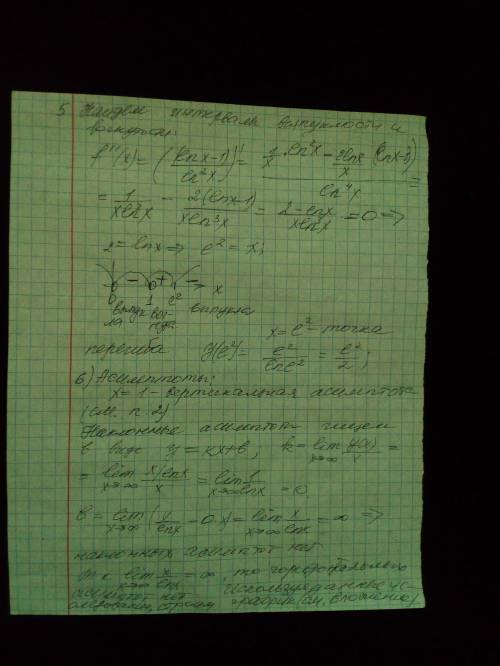 5 Найдем интервалы выпуклости и
вогнутости:
f''(x) = ((ln x - 1)/ln²x)' = (1/x · ln²x - 2ln x/x (ln x - 1))/ln⁴x =
= 1/(x ln²x) - 2(ln x - 1)/(x ln³x) = (2 - ln x)/(x ln³x) = 0 =>
2 = ln x => e² = x;
0 - 1 + e² - x
выпук ла вог нута выпукла
x = e² - точка
перегиба y(e²) = e²/ln e² = e²/2;
6) Асимптоты:
x = 1 - вертикальная асимптота
(см. п. 2)
Наклонные асимптоты ищем
в виде y = kx + b, k = lim x→∞ y(x)/x =
= lim x→∞ (x/ln x)/x = lim x→∞ 1/ln x = 0
b = lim x→∞ (x/ln x - 0·x) = lim x→∞ x/ln x = ∞ =>
наклонных асимптот нет
т.к lim x→∞ x/ln x = ∞, то горизонтальных
асимптот нет. Используя данные ис-
следования, строим график (см. вложение)